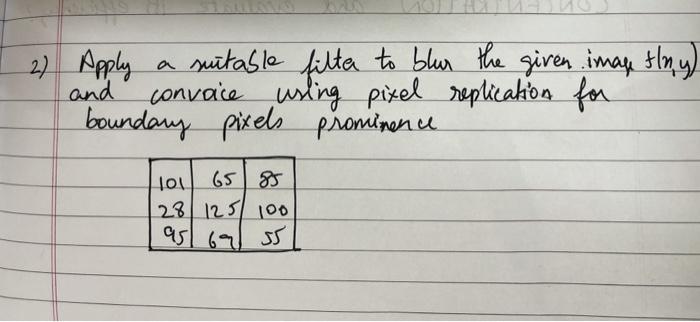 2) Apply a suitable filter to blur the given image f(x,y)
and convolve using pixel replication for
boundary pixels prominence
101 65 85
28 125 100
95 69 55